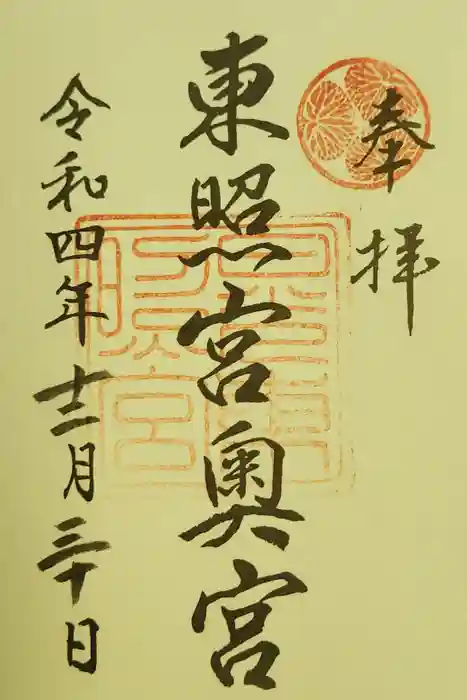 奉拝
東照宮奥宮
令和四年十二月三十日